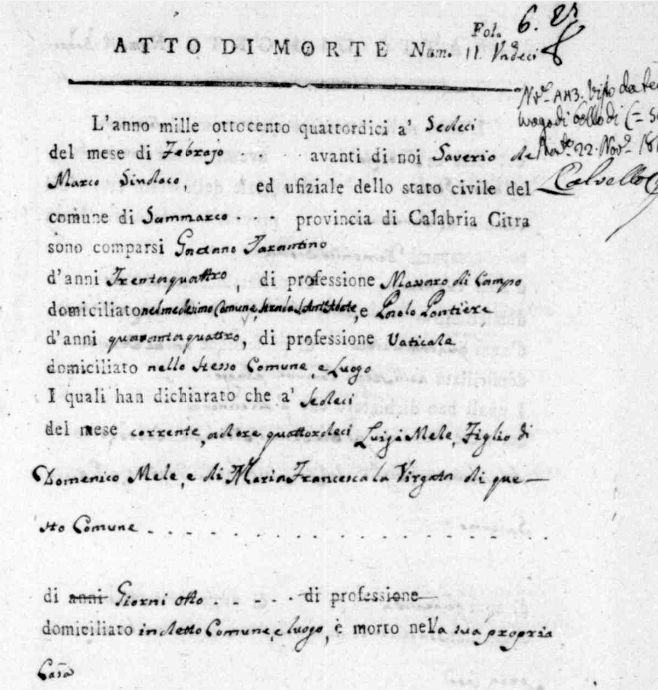 Fol. 6.
ATTO DI MORTE Num. 11. Undeci
L'anno mille ottocento quattordici a' Sedeci
del mese di Febrajo avanti di noi Saverio de
Marco Sindaco, ed ufiziale dello stato civile del
comune di Sammarco - - - provincia di Calabria Citra
sono comparsi Gaetano Tarantino
d'anni Trentaquattro, di professione Massaro di Campo
domiciliato nel medesimo Comune, Strada, e Paolo Pantiere
d'anni quarantaquattro, di professione Vaticale
domiciliato nello stesso Comune e Luogo
I quali han dichiarato che a' Sedeci
del mese corrente, ad ore quattordeci Luigi Mele, Figlio di
Domenico Mele, e di Maria Francesca la Virgata di que-
sto Comune - - -
di anni Giorni otto - - - - - di professione
domiciliato in detto Comune, e luogo, è morto nella sua propria
Casa
22. Nov.
Calvello